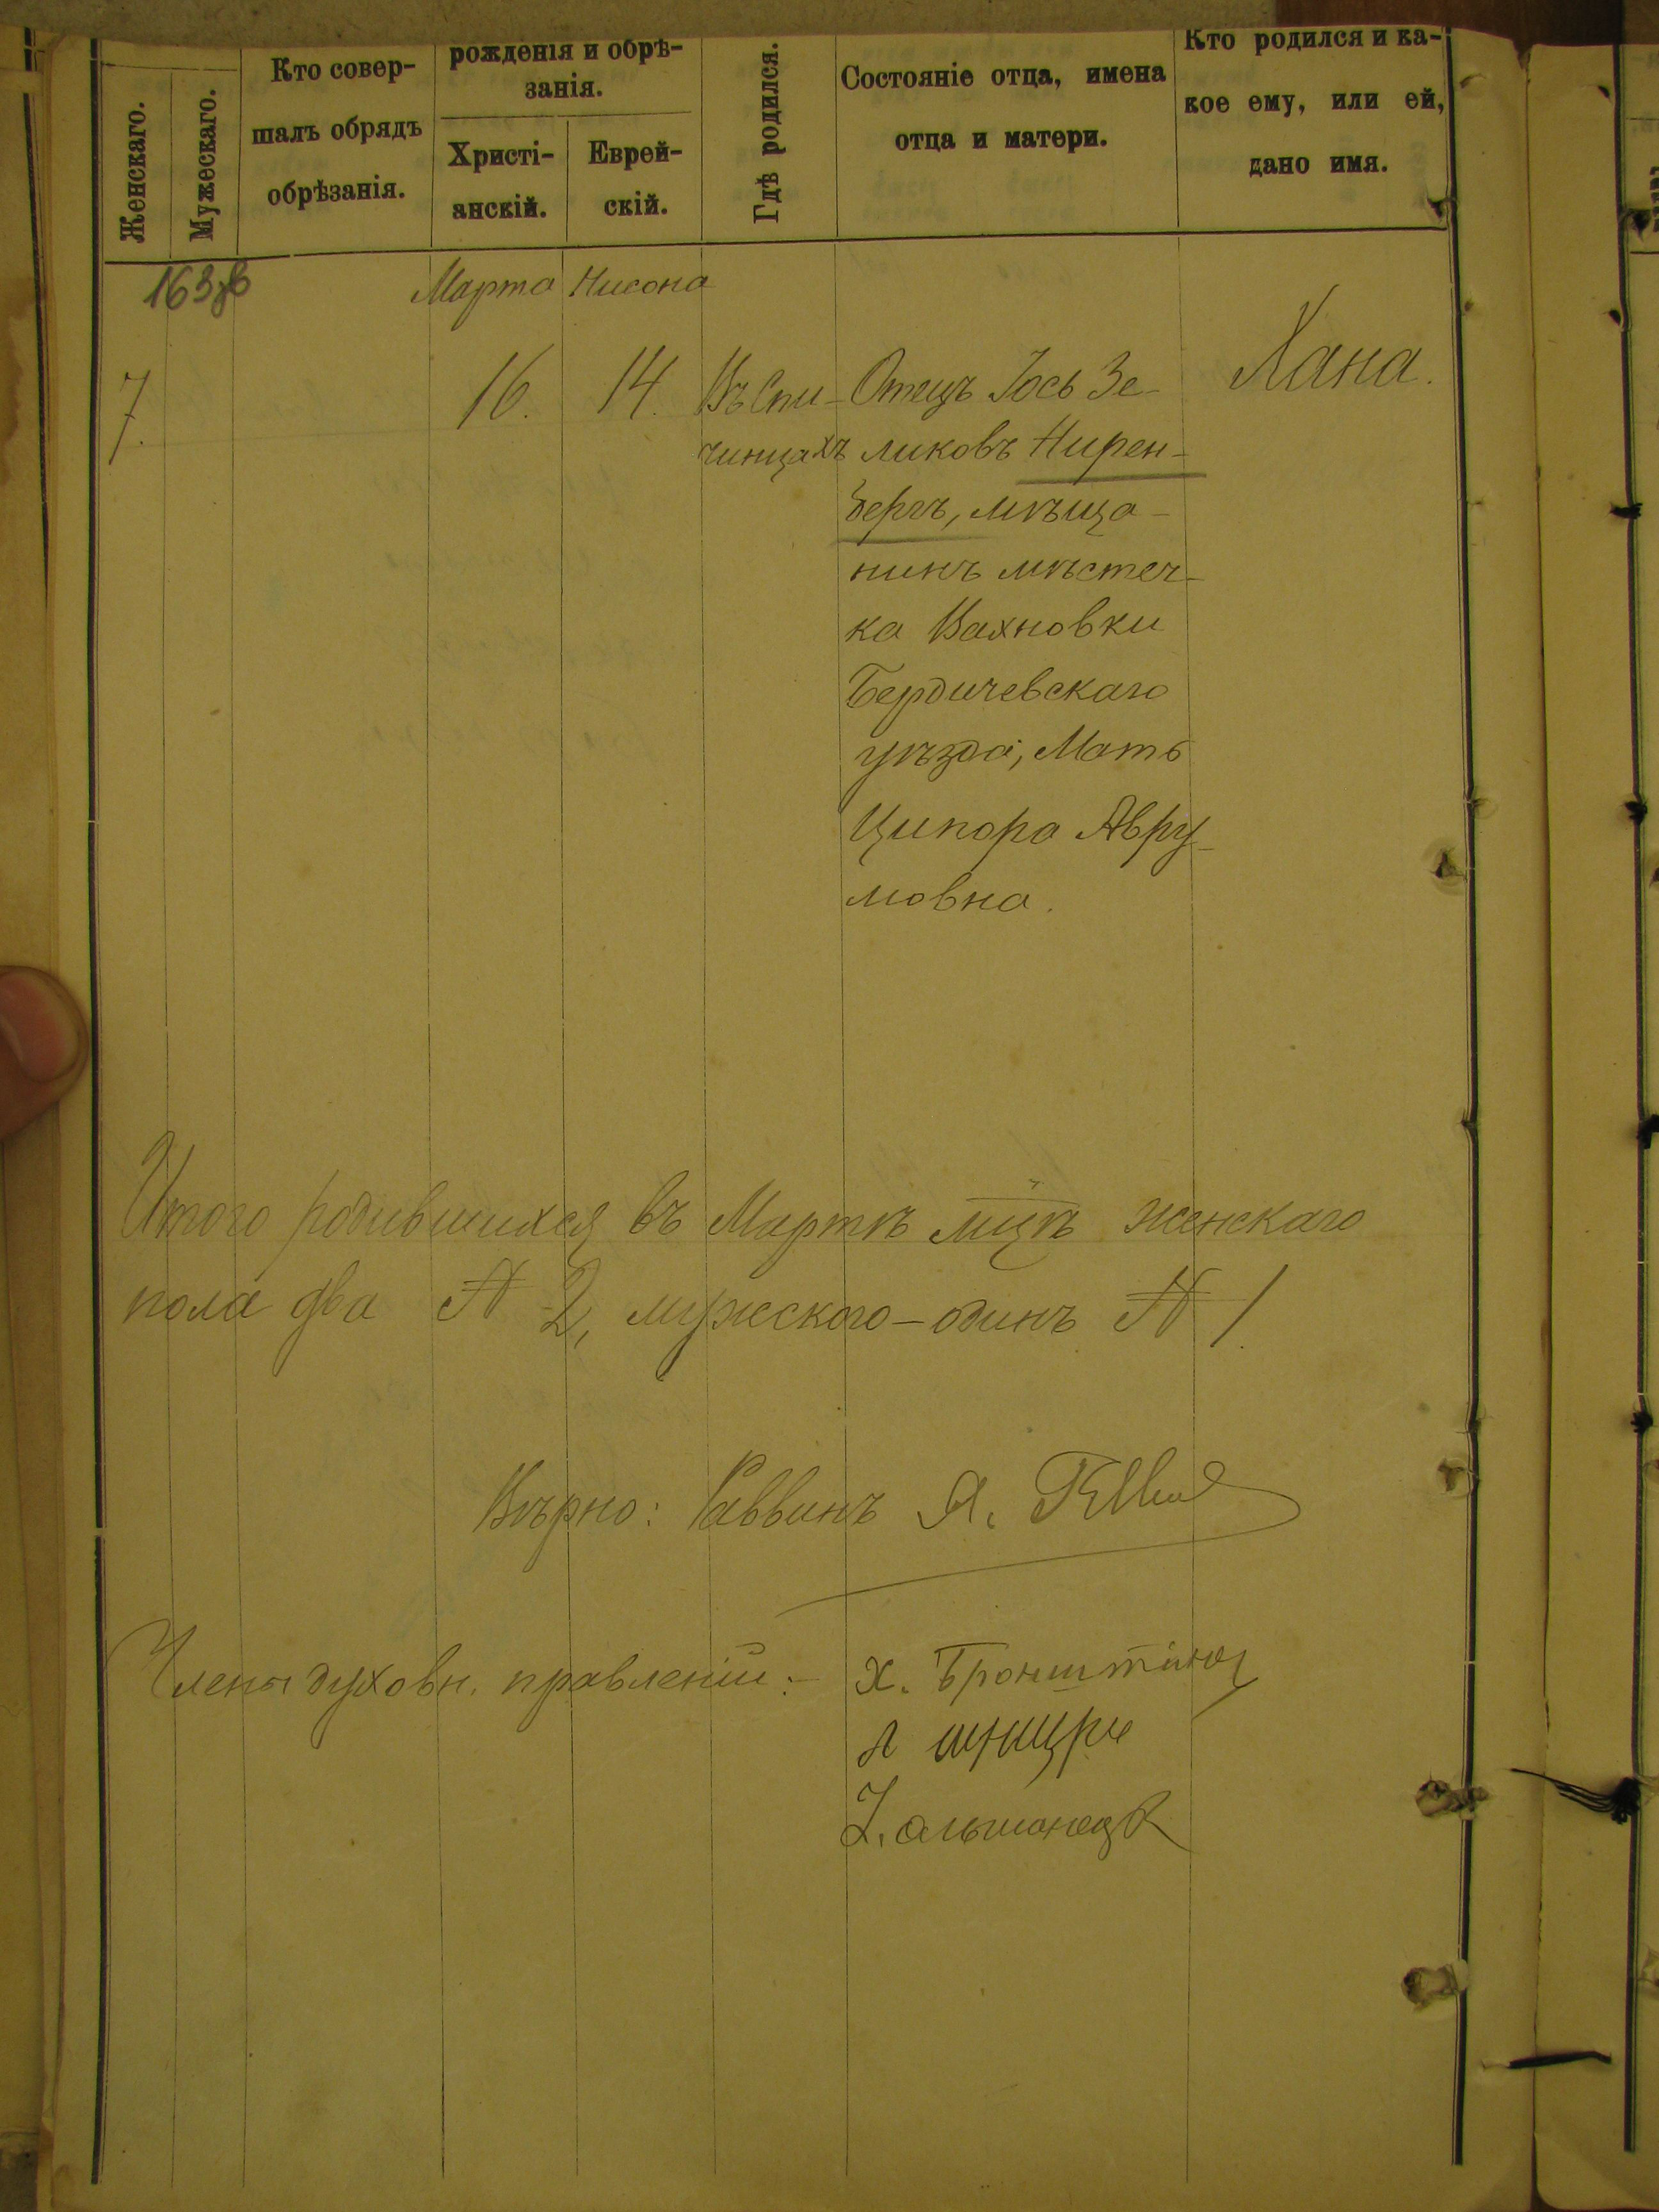 Женскаго.
Мужескаго.
Кто совер-
шалъ обрядъ
обрѣзанія.
рожденія и обрѣ-
занія.
Христі-
анскій.
Еврей-
скій.
Гдѣ родился.
Состояніе отца, имена
отца и матери.
Кто родился и ка-
кое ему, или ей,
дано имя.
163
Марта Нисона
7. 16. 14. Въ Спи- Отецъ Іось Зе- Хана.
чинцахъ ликовъ Нирен-
бергъ, мѣща-
нинъ мѣстеч-
ка Вахновки
Бердичевскаго
уѣзда, Мать
Ципора Авру-
мовна.
Итого родившихся въ Мартѣ мцѣ женскаго
пола два № 2, мужеского - одинъ № 1.
Вѣрно: Раввинъ Я.
Члены духовн. правленій: Х.